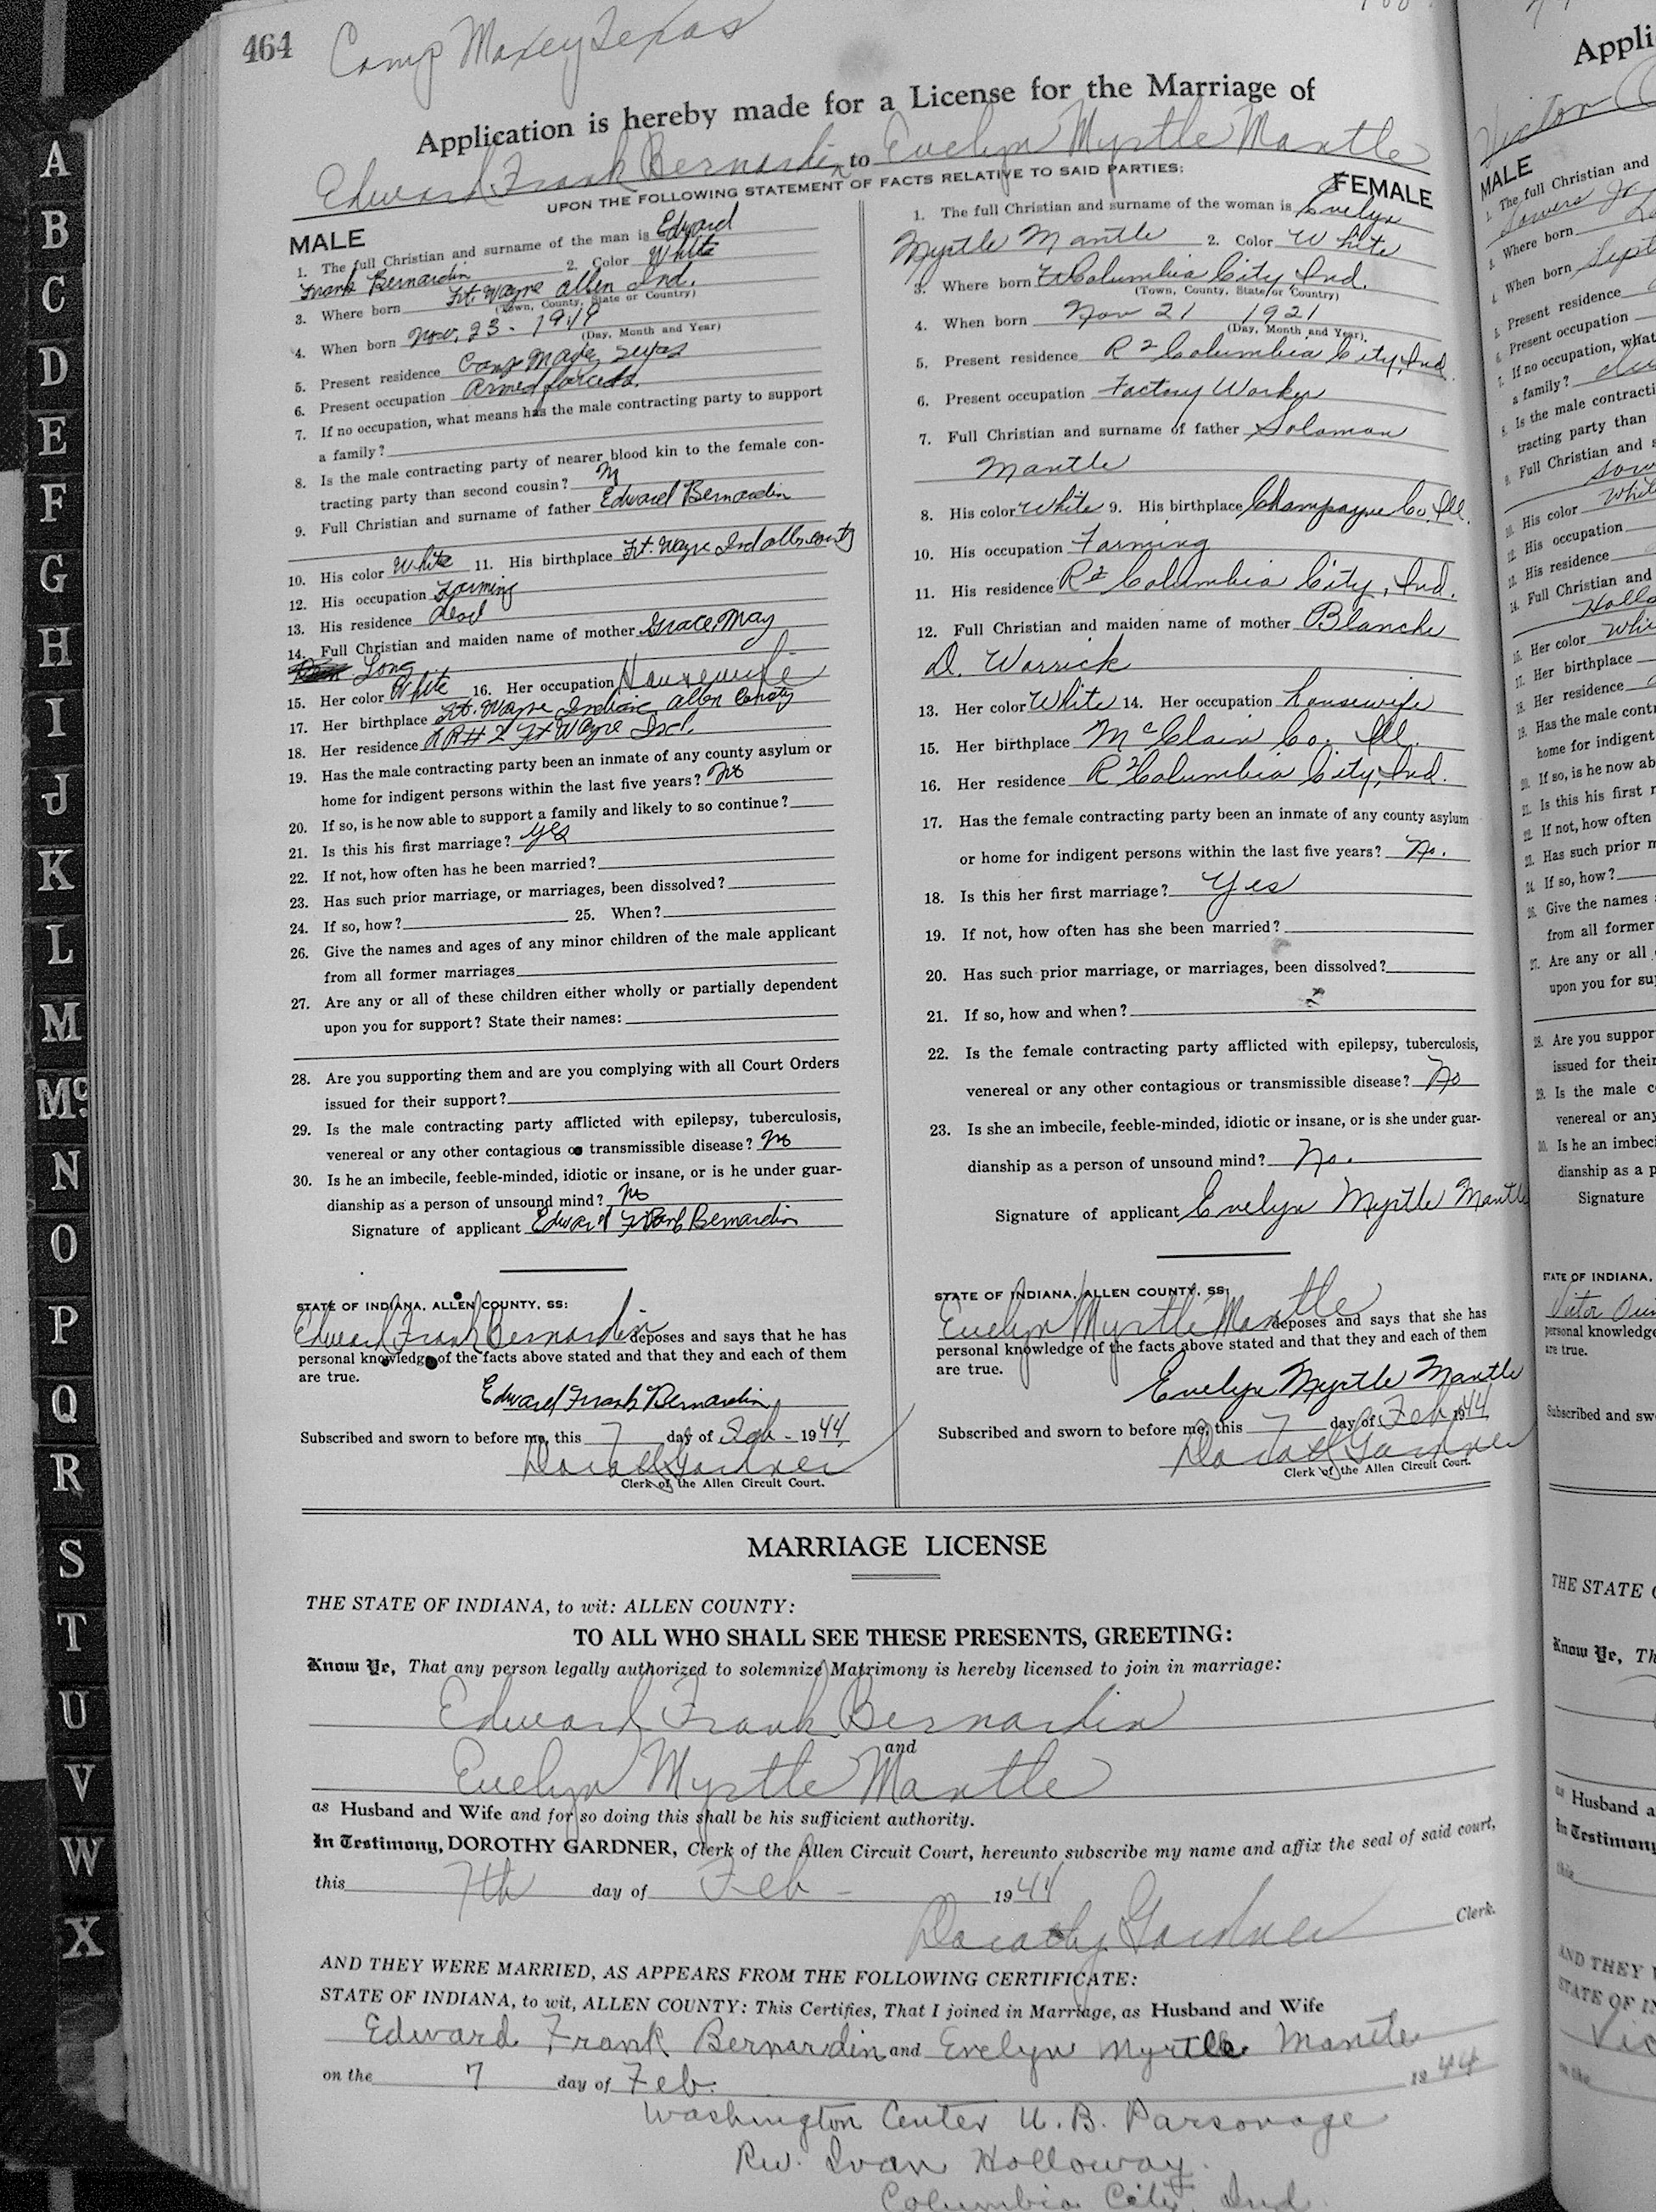 464
Camp Maxey Texas
Application is hereby made for a License for the Marriage of
Edward Frank Bernardin to Evelyn Myrtle Mantle
UPON THE FOLLOWING STATEMENT OF FACTS RELATIVE TO SAID PARTIES:
MALE
1. The full Christian and surname of the man is Edward
Frank Bernardin 2. Color White
3. Where born Ft. Wayne Allen Ind.
(Town, County, State or Country)
4. When born Nov. 23 - 1919
(Day, Month and Year)
5. Present residence Camp
6. Present occupation Armed forces.
7. If no occupation, what means has the male contracting party to support
a family?
8. Is the male contracting party of nearer blood kin to the female con-
tracting party than second cousin?
9. Full Christian and surname of father Edward Bernardin
10. His color White 11. His birthplace Ft. Wayne Ind
12. His occupation Farming
13. His residence dead
14. Full Christian and maiden name of mother Grace May
Long
15. Her color White 16. Her occupation Housewife
17. Her birthplace Ft. Wayne Indiana Allen County
18. Her residence RR # 2 Ft Wayne Ind.
19. Has the male contracting party been an inmate of any county asylum or
home for indigent persons within the last five years? No
20. If so, is he now able to support a family and likely to so continue?
21. Is this his first marriage? yes
22. If not, how often has he been married?
23. Has such prior marriage, or marriages, been dissolved?
24. If so, how? 25. When?
26. Give the names and ages of any minor children of the male applicant
from all former marriages
27. Are any or all of these children either wholly or partially dependent
upon you for support? State their names:
28. Are you supporting them and are you complying with all Court Orders
issued for their support?
29. Is the male contracting party afflicted with epilepsy, tuberculosis,
venereal or any other contagious or transmissible disease? No
30. Is he an imbecile, feeble-minded, idiotic or insane, or is he under guar-
dianship as a person of unsound mind? No
Signature of applicant Edward Frank Bernardin
STATE OF INDIANA, ALLEN COUNTY, SS:
Edward Frank Bernardin deposes and says that he has
personal knowledge of the facts above stated and that they and each of them
are true.
Edward Frank Bernardin
Subscribed and sworn to before me, this 7 day of Feb - 1944
Dorothy Gardner
Clerk of the Allen Circuit Court.
FEMALE
1. The full Christian and surname of the woman is Evelyn
Myrtle Mantle 2. Color White
3. Where born Columbia City Ind.
(Town, County, State or Country)
4. When born Nov 21 1921
(Day, Month and Year)
5. Present residence R 2 Columbia City, Ind.
6. Present occupation Factory Worker
7. Full Christian and surname of father Soloman
Mantle
8. His color White 9. His birthplace Champayne Co. Ill.
10. His occupation Farming
11. His residence R 2 Columbia City, Ind.
12. Full Christian and maiden name of mother Blanche
D. Warrick
13. Her color White 14. Her occupation housewife
15. Her birthplace McClain Co. Ill.
16. Her residence R 2 Columbia City, Ind.
17. Has the female contracting party been an inmate of any county asylum
or home for indigent persons within the last five years? No.
18. Is this her first marriage? Yes
19. If not, how often has she been married?
20. Has such prior marriage, or marriages, been dissolved?
21. If so, how and when?
22. Is the female contracting party afflicted with epilepsy, tuberculosis,
venereal or any other contagious or transmissible disease? No
23. Is she an imbecile, feeble-minded, idiotic or insane, or is she under guar-
dianship as a person of unsound mind? No.
Signature of applicant Evelyn Myrtle Mantle
STATE OF INDIANA, ALLEN COUNTY, SS:
Evelyn Myrtle Mantle deposes and says that she has
personal knowledge of the facts above stated and that they and each of them
are true.
Evelyn Myrtle Mantle
Subscribed and sworn to before me, this 7 day of Feb 1944
Dorothy Gardner
Clerk of the Allen Circuit Court.
MARRIAGE LICENSE
THE STATE OF INDIANA, to wit: ALLEN COUNTY:
TO ALL WHO SHALL SEE THESE PRESENTS, GREETING:
Know Ye, That any person legally authorized to solemnize Matrimony is hereby licensed to join in marriage:
Edward Frank Bernardin
and
Evelyn Myrtle Mantle
as Husband and Wife and for so doing this shall be his sufficient authority.
In Testimony, DOROTHY GARDNER, Clerk of the Allen Circuit Court, hereunto subscribe my name and affix the seal of said court,
this 7th day of Feb - 1944
Dorothy Gardner Clerk.
AND THEY WERE MARRIED, AS APPEARS FROM THE FOLLOWING CERTIFICATE:
STATE OF INDIANA, to wit, ALLEN COUNTY: This Certifies, That I joined in Marriage, as Husband and Wife
Edward Frank Bernardin and Evelyn Myrtle Mantle
on the 7 day of Feb. 1944
Washington Center U. B. Parsonage
Rev. Ivan Holloway.
Columbia City, Ind.
A
B
C
D
E
F
G
H
I
J
K
L
M
Mc
N
O
P
Q
R
S
T
U
V
W
X